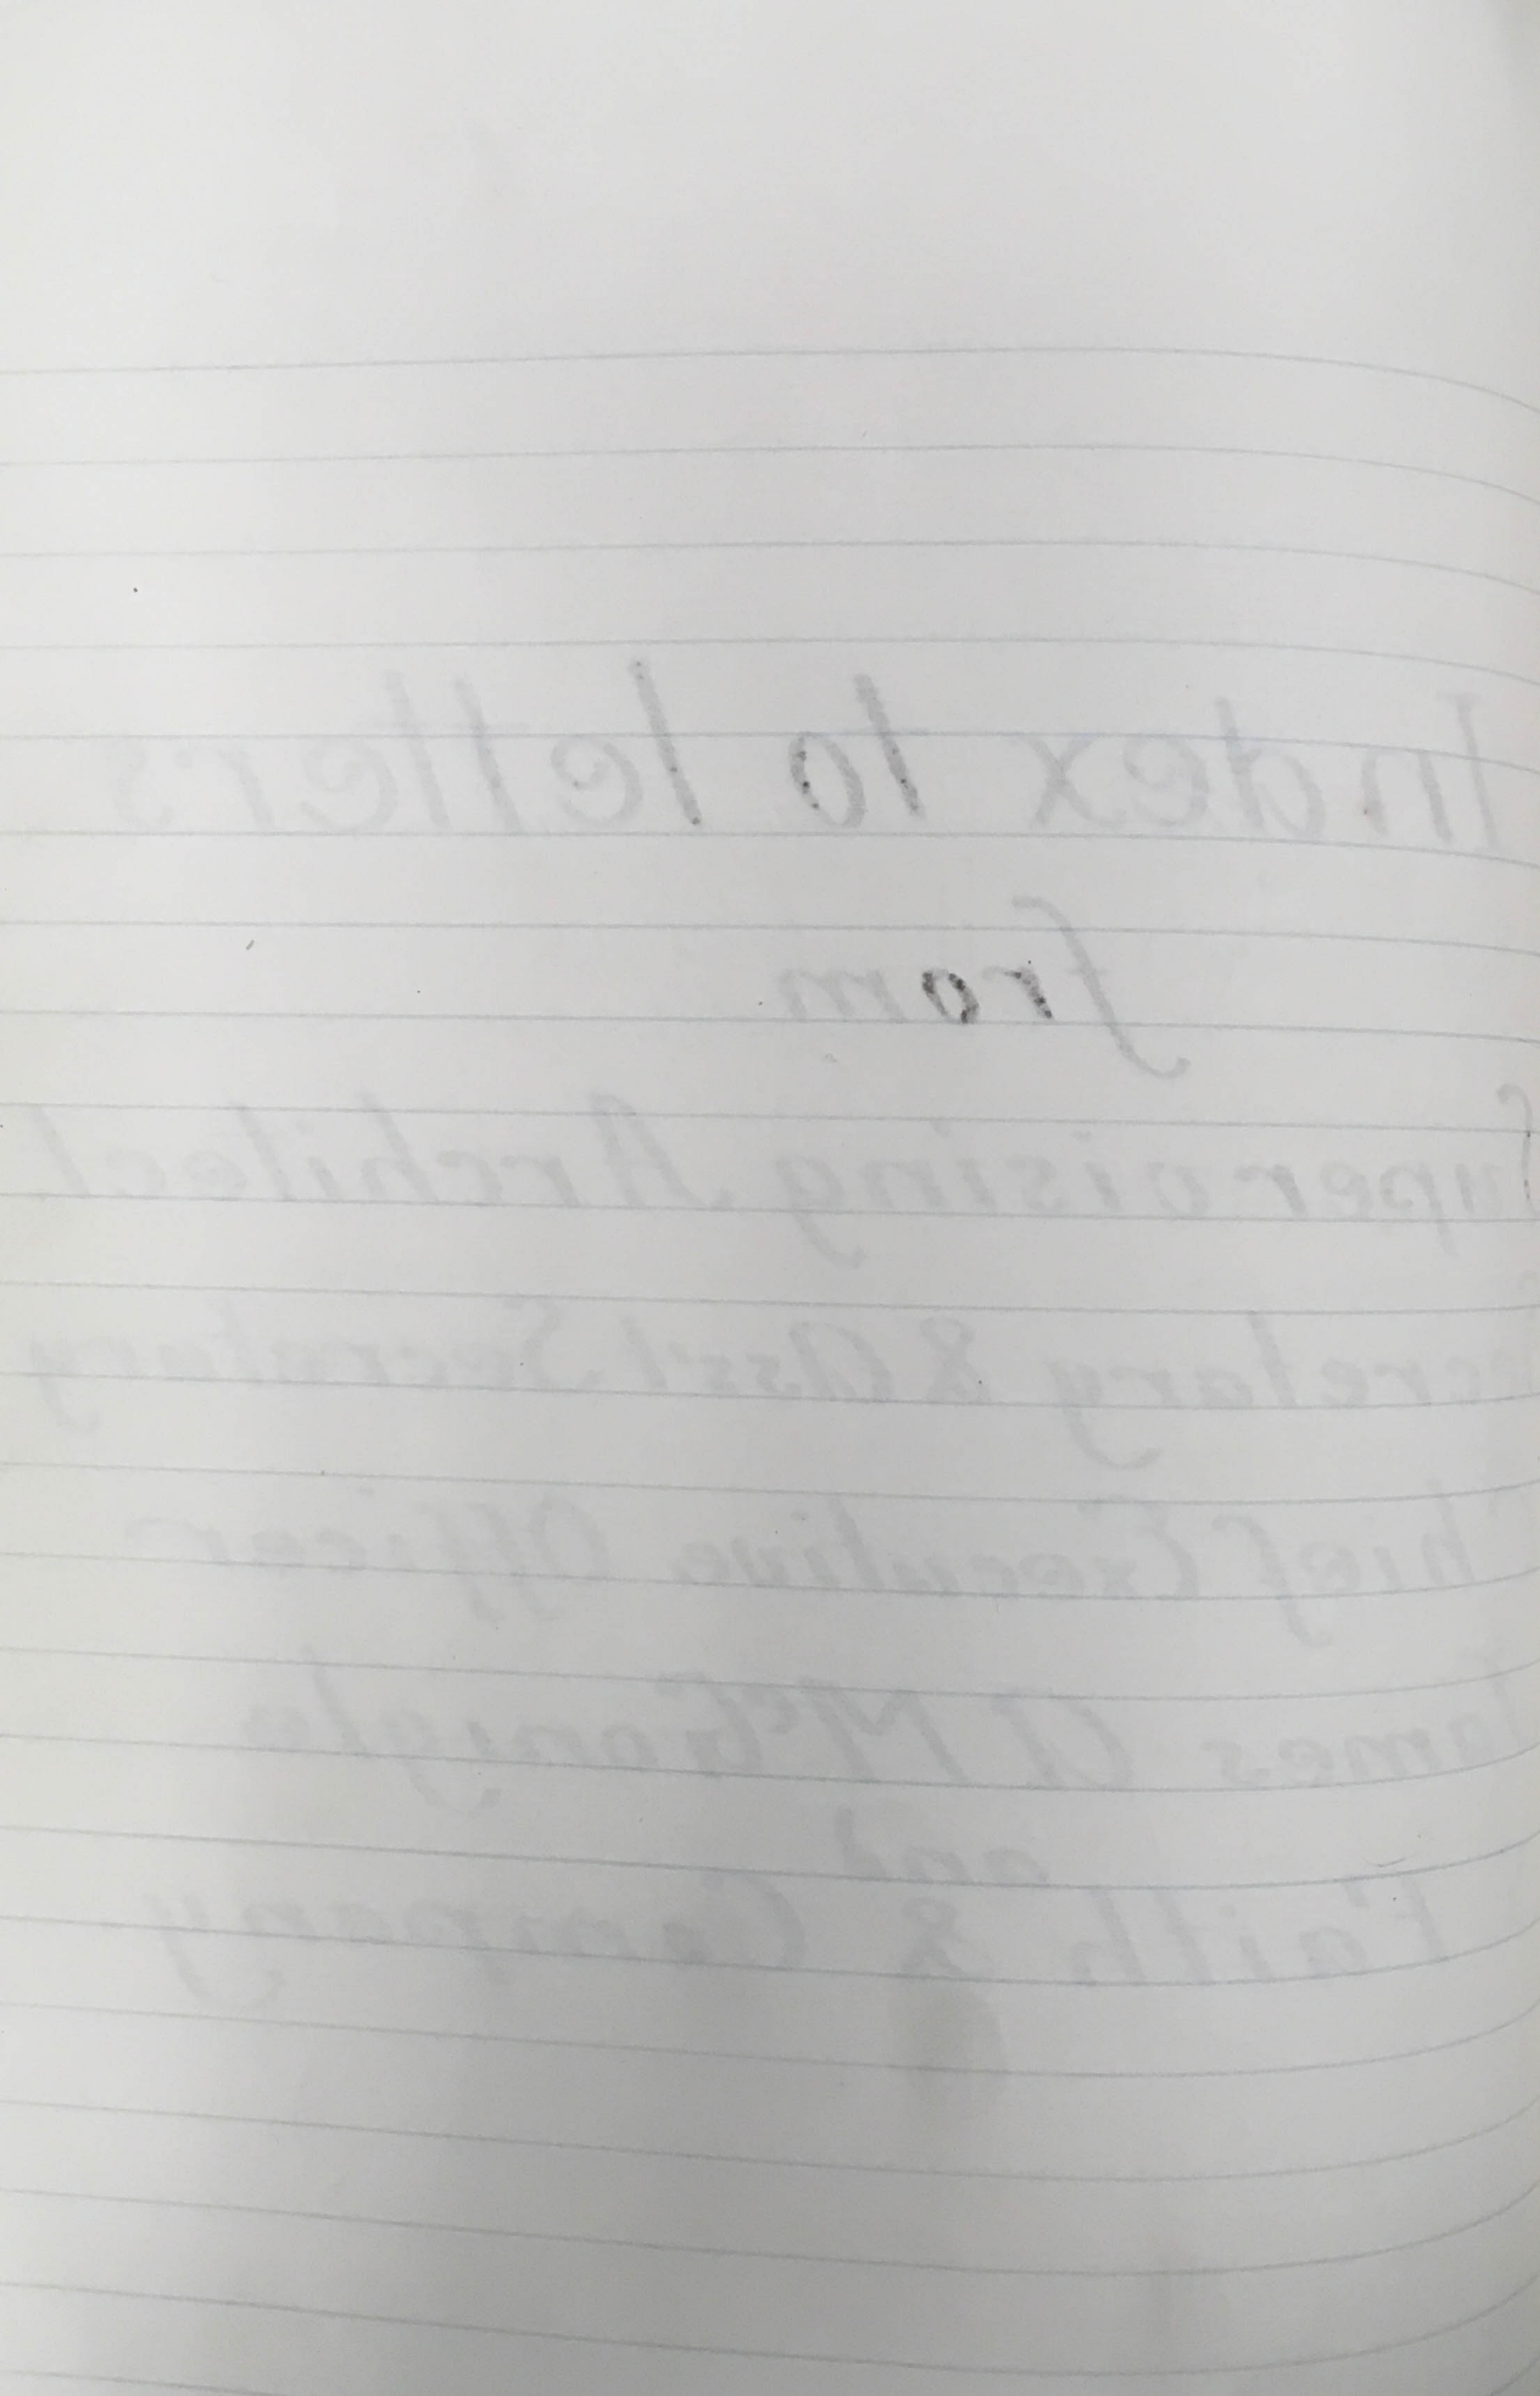 Index to letters
from
Supervising Architect
Secretary & Ass't Secretary
Chief Executive Officer
James A McGonigle
and
Faith & Company